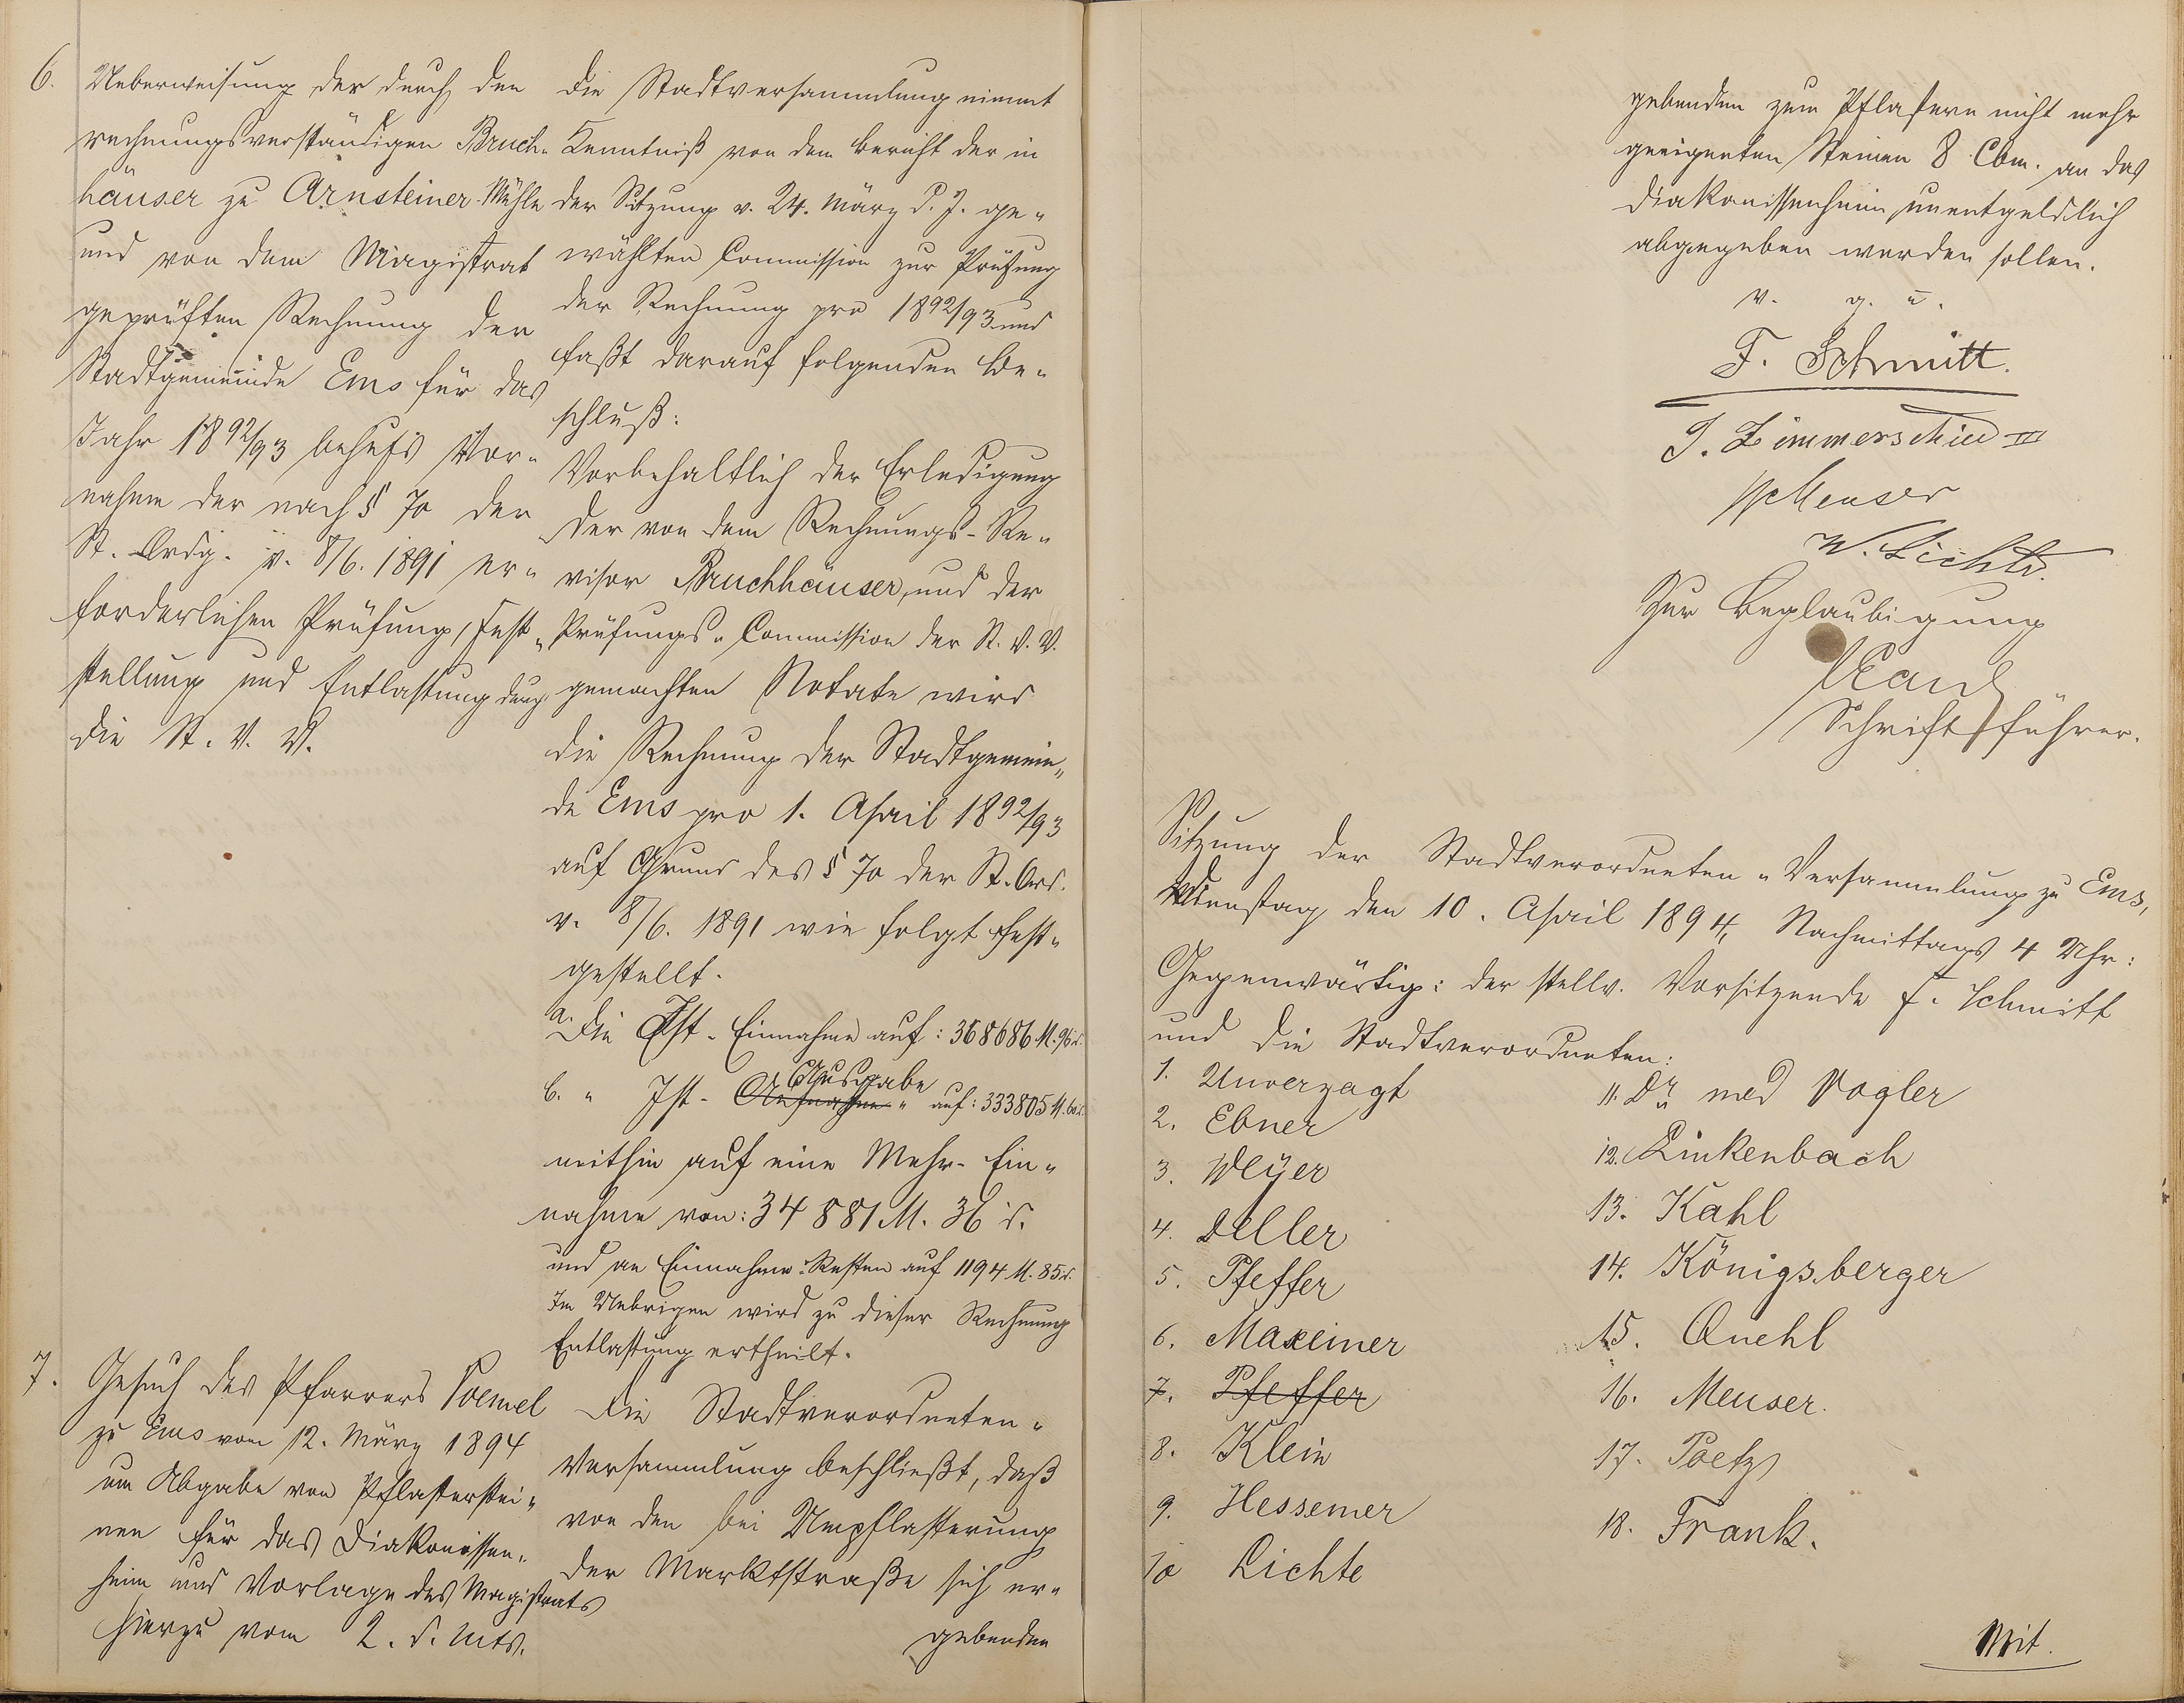 6.
Ueberweisung der durch den
rechnungsverständigen Bruch-
häuser zu Arnsteiner-Mühle
und von dem Magistrat
geprüften Rechnung der
Stadtgemeinde Ems für das
Jahr 1892/93 behufs Vor-
nahme der nach § 70 der
St. Ordg. v. 8/6. 1891 er-
forderlichen Prüfung, Fest-
stellung und Entlastung durch
die St. V. V.
Die Stadtversammlung nimmt
Kenntniß von dem Bericht der in
der Sitzung v. 24. März d. J. ge-
wählten Commission zur Prüfung
der Rechnung pro 1892/93 und
faßt darauf folgenden Be-
schluß:
Vorbehaltlich der Erledigung
der von dem Rechnungs-Re-
visor Bruchhäuser, und der
Prüfungs-Commission der St. V. V.
gemachten Notate wird
die Rechnung der Stadtgemein-
de Ems pro 1. April 1892/93
auf Grund des § 70 der St. Ord.
v. 8/6. 1891 wie folgt fest-
gestellt.
a. Die Ist-Einnahme auf: 368686 M. 96 d.
Ausgabe
b. " Ist- " auf: 333805 M. 60 d.
mithin auf eine Mehr-Ein-
nahme von: 34881 M. 36 d.
und an Einnahme-Resten auf 1194 M. 85 d.
Im Uebrigen wird zu dieser Rechnung
Entlastung ertheilt.
7.
Gesuch des Pfarrers Poemel
zu Ems vom 12. März 1894
um Abgabe von Pflasterstei-
nen für das Diakonissen-
heim und Vorlage des Magistrats
hierzu vom 2. d. Mts.
Die Stadtverordneten-
Versammlung beschließt, daß
von den bei Umpflasterung
der Marktstraße sich er-
gebenden
gebenden zum Pflastern nicht mehr
geeigneten Steinen 8 Cbm. an das
Diakonissenheim unentgeldlich
abgegeben werden sollen.
v. g. u.
F. Schmitt.
J. Zimmerschied III
Meuser
W. Lichte.
Zur Beglaubigung
Schriftführer.
Sitzung der Stadtverordneten-Versammlung zu Ems,
Dienstag den 10. April 1894, Nachmittags 4 Uhr:
Gegenwärtig: der stellv. Vorsitzende F. Schmitt
und die Stadtverordneten:
1. Unverzagt
2. Ebner
3. Weyer
4. Deller
5. Pfeffer
6. Maxeiner
7. Pfeffer
8. Klein
9. Hessemer
10 Lichte
11. Dr. med Vogler
12. Linkenbach
13. Kahl
14. Königsberger
15. Quehl
16. Meuser.
17. Poetz
18. Frank.
Mit.